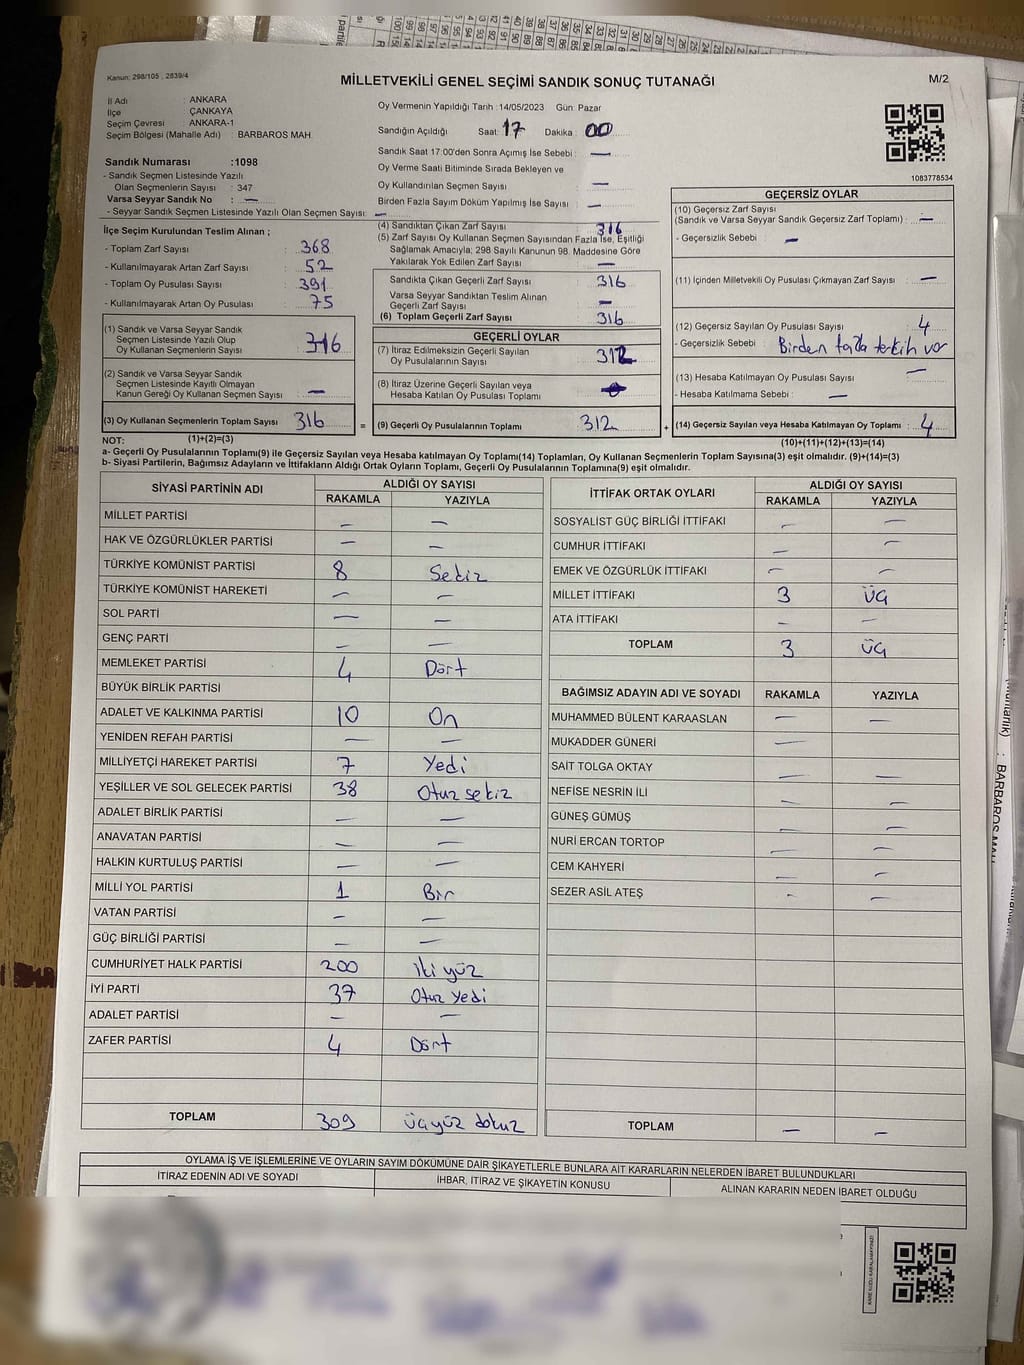 Kanun: 298/105 , 2839/4
MİLLETVEKİLİ GENEL SEÇİMİ SANDIK SONUÇ TUTANAĞI
M/2
İl Adı : ANKARA
İlçe : ÇANKAYA
Seçim Çevresi : ANKARA-1
Seçim Bölgesi (Mahalle Adı) : BARBAROS MAH.
Sandık Numarası :1098
- Sandık Seçmen Listesinde Yazılı
Olan Seçmenlerin Sayısı : 347
Varsa Seyyar Sandık No : —
- Seyyar Sandık Seçmen Listesinde Yazılı Olan Seçmen Sayısı: —
Oy Vermenin Yapıldığı Tarih :14/05/2023 Gün: Pazar
Sandığın Açıldığı Saat: 17 Dakika : 00
Sandık Saat 17:00'den Sonra Açımış İse Sebebi : —
Oy Verme Saati Bitiminde Sırada Bekleyen ve
Oy Kullandırılan Seçmen Sayısı —
Birden Fazla Sayım Döküm Yapılmış İse Sayısı : —
1083778534
İlçe Seçim Kurulundan Teslim Alınan ;
- Toplam Zarf Sayısı : 368
- Kullanılmayarak Artan Zarf Sayısı : 52
- Toplam Oy Pusulası Sayısı : 391
- Kullanılmayarak Artan Oy Pusulası : 75
(1) Sandık ve Varsa Seyyar Sandık
Seçmen Listesinde Yazılı Olup
Oy Kullanan Seçmenlerin Sayısı : 316
(2) Sandık ve Varsa Seyyar Sandık
Seçmen Listesinde Kayıtlı Olmayan
Kanun Gereği Oy Kullanan Seçmen Sayısı : —
(3) Oy Kullanan Seçmenlerin Toplam Sayısı 316
(1)+(2)=(3)
(4) Sandıktan Çıkan Zarf Sayısı : 316
(5) Zarf Sayısı Oy Kullanan Seçmen Sayısından Fazla İse, Eşitliği
Sağlamak Amacıyla; 298 Sayılı Kanunun 98. Maddesine Göre
Yakılarak Yok Edilen Zarf Sayısı : —
Sandıkta Çıkan Geçerli Zarf Sayısı : 316
Varsa Seyyar Sandıktan Teslim Alınan
Geçerli Zarf Sayısı : —
(6) Toplam Geçerli Zarf Sayısı : 316
GEÇERLİ OYLAR
(7) İtiraz Edilmeksizin Geçerli Sayılan
Oy Pusulalarının Sayısı : 312
(8) İtiraz Üzerine Geçerli Sayılan veya
Hesaba Katılan Oy Pusulası Toplamı
= (9) Geçerli Oy Pusulalarının Toplamı 312
GEÇERSİZ OYLAR
(10) Geçersiz Zarf Sayısı
(Sandık ve Varsa Seyyar Sandık Geçersiz Zarf Toplamı) : —
- Geçersizlik Sebebi : —
(11) İçinden Milletvekili Oy Pusulası Çıkmayan Zarf Sayısı : —
(12) Geçersiz Sayılan Oy Pusulası Sayısı : 4
- Geçersizlik Sebebi : Birden fazla tercih var
(13) Hesaba Katılmayan Oy Pusulası Sayısı : —
- Hesaba Katılmama Sebebi : —
+ (14) Geçersiz Sayılan veya Hesaba Katılmayan Oy Toplamı : 4
(10)+(11)+(12)+(13)=(14)
NOT:
a- Geçerli Oy Pusulalarının Toplamı(9) ile Geçersiz Sayılan veya Hesaba katılmayan Oy Toplamı(14) Toplamları, Oy Kullanan Seçmenlerin Toplam Sayısına(3) eşit olmalıdır. (9)+(14)=(3)
b- Siyasi Partilerin, Bağımsız Adayların ve İttifakların Aldığı Ortak Oyların Toplamı, Geçerli Oy Pusulalarının Toplamına(9) eşit olmalıdır.
SİYASİ PARTİNİN ADI ALDIĞI OY SAYISI
RAKAMLA YAZIYLA
MİLLET PARTİSİ — —
HAK VE ÖZGÜRLÜKLER PARTİSİ — —
TÜRKİYE KOMÜNİST PARTİSİ 8 Sekiz
TÜRKİYE KOMÜNİST HAREKETİ — —
SOL PARTİ — —
GENÇ PARTİ — —
MEMLEKET PARTİSİ 4 Dört
BÜYÜK BİRLİK PARTİSİ
ADALET VE KALKINMA PARTİSİ 10 On
YENİDEN REFAH PARTİSİ — —
MİLLİYETÇİ HAREKET PARTİSİ 7 Yedi
YEŞİLLER VE SOL GELECEK PARTİSİ 38 Otuz sekiz
ADALET BİRLİK PARTİSİ — —
ANAVATAN PARTİSİ — —
HALKIN KURTULUŞ PARTİSİ — —
MİLLİ YOL PARTİSİ 1 Bir
VATAN PARTİSİ — —
GÜÇ BİRLİĞİ PARTİSİ — —
CUMHURİYET HALK PARTİSİ 200 iki yüz
İYİ PARTİ 37 Otuz Yedi
ADALET PARTİSİ — —
ZAFER PARTİSİ 4 Dört
TOPLAM 309 üçyüz dokuz
İTTİFAK ORTAK OYLARI ALDIĞI OY SAYISI
RAKAMLA YAZIYLA
SOSYALİST GÜÇ BİRLİĞİ İTTİFAKI — —
CUMHUR İTTİFAKI — —
EMEK VE ÖZGÜRLÜK İTTİFAKI — —
MİLLET İTTİFAKI 3 üç
ATA İTTİFAKI — —
TOPLAM 3 üç
BAĞIMSIZ ADAYIN ADI VE SOYADI RAKAMLA YAZIYLA
MUHAMMED BÜLENT KARAASLAN — —
MUKADDER GÜNERİ —
SAİT TOLGA OKTAY — —
NEFİSE NESRİN İLİ — —
GÜNEŞ GÜMÜŞ — —
NURİ ERCAN TORTOP — —
CEM KAHYERİ — —
SEZER ASİL ATEŞ — —
TOPLAM — —
OYLAMA İŞ VE İŞLEMLERİNE VE OYLARIN SAYIM DÖKÜMÜNE DAİR ŞİKAYETLERLE BUNLARA AİT KARARLARIN NELERDEN İBARET BULUNDUKLARI
İTİRAZ EDENİN ADI VE SOYADI İHBAR, İTİRAZ VE ŞİKAYETİN KONUSU ALINAN KARARIN NEDEN İBARET OLDUĞU
BARBAROS MAH.